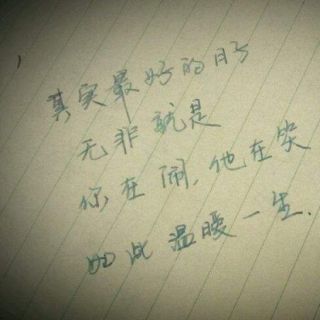 其实最好的日子
无非就是
你在闹,他在笑
如此温暖一生.